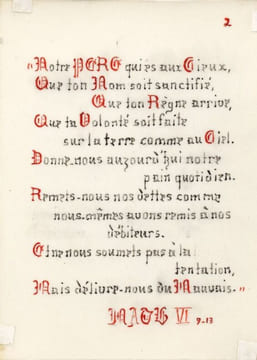 2
"Notre PERE qui es aux Cieux,
Que ton Nom soit sanctifié,
Que ton Règne arrive,
Que ta Volonté soit faite
sur la terre comme au Ciel.
Donne-nous aujourd'hui notre
pain quotidien.
Remets-nous nos dettes comme
nous-mêmes avons remis à nos
débiteurs.
Et ne nous soumets pas à la
tentation,
Mais délivre-nous du Mauvais."
MATH VI 9-13